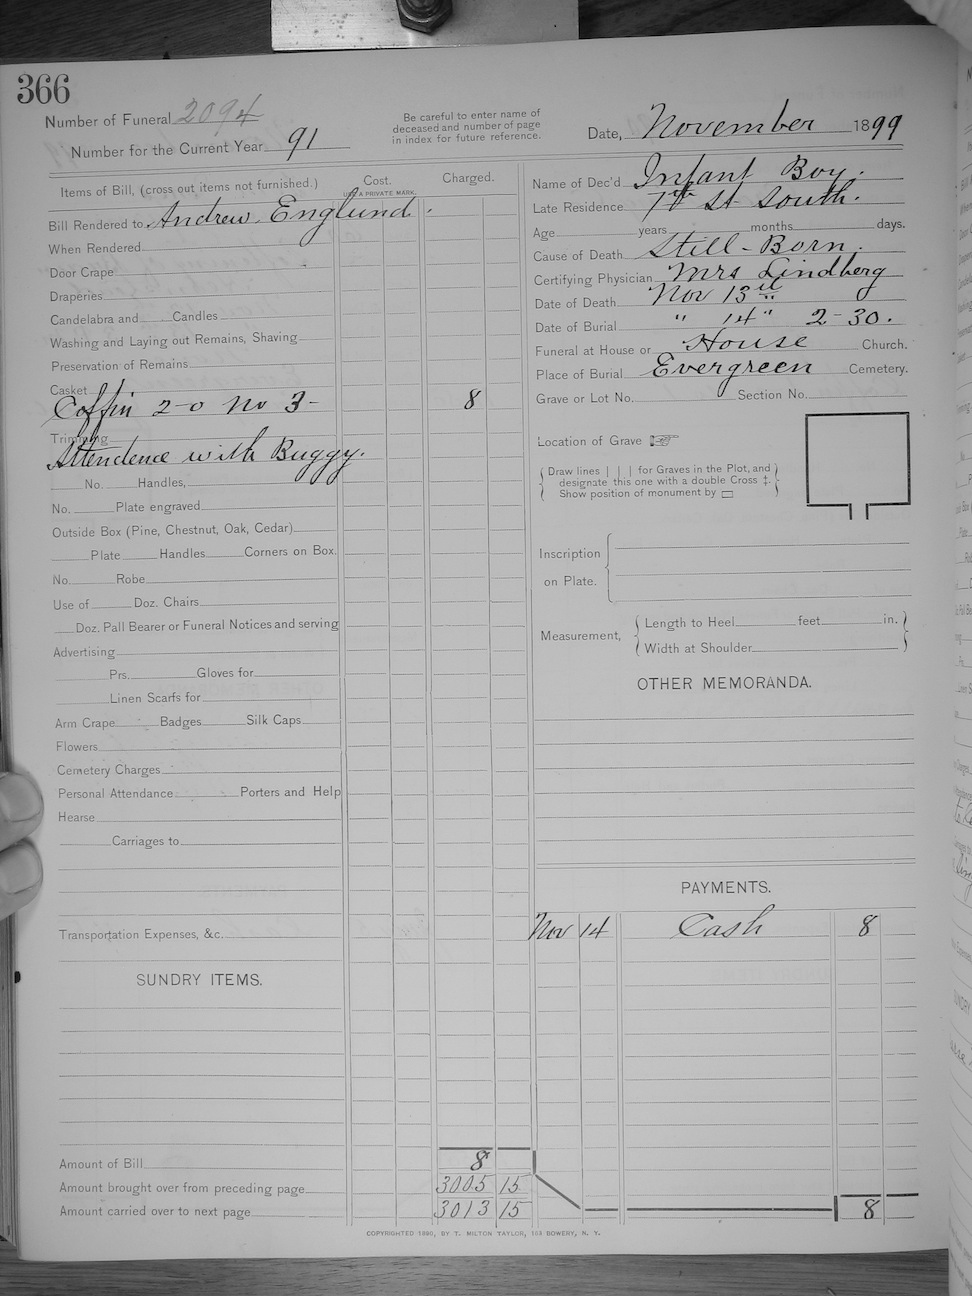 366
Number of Funeral 2094
Number for the Current Year 91
Be careful to enter name of
deceased and number of page
in index for future reference.
Date, November 1899
Items of Bill, (cross out items not furnished.)
Cost.
USE A PRIVATE MARK.
Charged.
Bill Rendered to Andrew Englund.
When Rendered
Door Crape
Draperies
Candelabra and Candles
Washing and Laying out Remains, Shaving
Preservation of Remains
Casket
Coffin 2-0 No 3- 8
Trimming
Attendence with Buggy.
No. Handles,
No. Plate engraved
Outside Box (Pine, Chestnut, Oak, Cedar)
Plate Handles Corners on Box.
No. Robe
Use of Doz. Chairs
Doz. Pall Bearer or Funeral Notices and serving
Advertising
Prs. Gloves for
Linen Scarfs for
Arm Crape Badges Silk Caps
Flowers
Cemetery Charges
Personal Attendance Porters and Help
Hearse
Carriages to
Transportation Expenses, &c.
SUNDRY ITEMS.
Amount of Bill 8
Amount brought over from preceding page 3005 15
Amount carried over to next page 3013 15
Name of Dec'd Infant Boy.
Late Residence 7th St South.
Age years months days.
Cause of Death Still-Born.
Certifying Physician Mrs Lindberg
Date of Death Nov 13th
Date of Burial " 14" 2-30.
Funeral at House or House Church.
Place of Burial Evergreen Cemetery.
Grave or Lot No. Section No.
Location of Grave
Draw lines | | | for Graves in the Plot, and
designate this one with a double Cross ‡.
Show position of monument by ▭
Inscription
on Plate.
Measurement,
Length to Heel feet in.
Width at Shoulder
OTHER MEMORANDA.
PAYMENTS.
Nov 14 Cash 8
8
COPYRIGHTED 1890, BY T. MILTON TAYLOR, 163 BOWERY, N. Y.